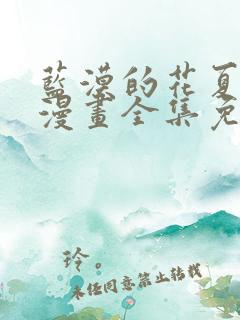 藍漠的花夏
漫畫全集免
玲。
未经同意禁止转载